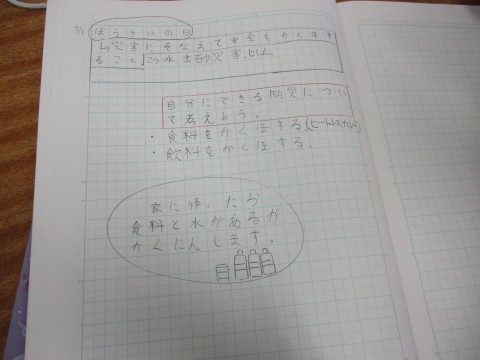 9/1 ぼうさいの日
↳災害にそなえて安全をかくほす
ること こう水、土砂災害、じしん
自分にできる防災につい
て考えよう。
・食料をかくほする(ヒートレスカレー)
・飲料をかくほする。
家に帰ったら
食料と水があるか
かくにんします。